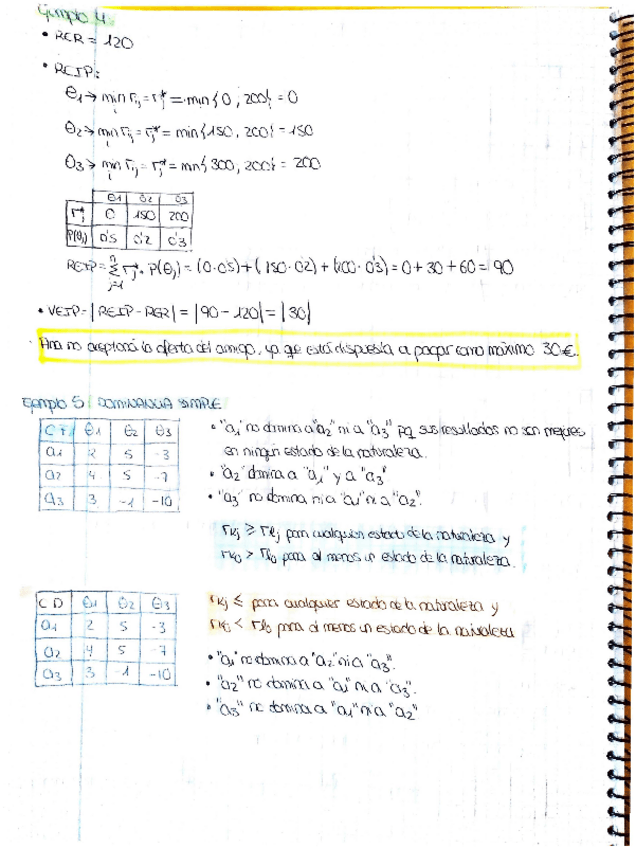 Ejemplo 4
• RER = 120
• REIP:
θ1 → min rij = rj* = min {0, 200} = 0
i
θ2 → min rij = rj* = min {150, 200} = 150
i
θ3 → min rij = rj* = min {300, 200} = 200
i
θ1 θ2 θ3
rj* 0 150 200
P(θj) 0'5 0'2 0'3
REIP = Σ rj* · P(θj) = (0·0'5) + (150·0'2) + (200·0'3) = 0 + 30 + 60 = 90
• VEIP = |REIP - RER| = |90 - 120| = |30|
Ana no aceptará la oferta del amigo, ya qe está dispuesta a pagar como máximo 30€.
Ejemplo 5: DOMINANCIA SIMPLE
CF θ1 θ2 θ3
a1 2 5 -3
a2 4 5 -7
a3 3 -1 -10
• "a1" no domina a "a2" ni a "a3" pq sus resultados no son mejores
en ningún estado de la naturaleza.
• "a2" domina a "a1" y a "a3"
• "a3" no domina ni a "a1" ni a "a2".
rkj ≥ rlj para cualquier estado de la naturaleza y
rko > rlo para al menos un estado de la naturaleza.
CD θ1 θ2 θ3
a1 2 5 -3
a2 4 5 -7
a3 3 -1 -10
rkj ≤ para cualquier estado de la naturaleza y
rko < rlo para al menos un estado de la naturaleza
• "a1" no domina a "a2" ni a "a3".
• "a2" no domina a "a1" ni a "a3".
• "a3" no domina a "a1" ni a "a2"